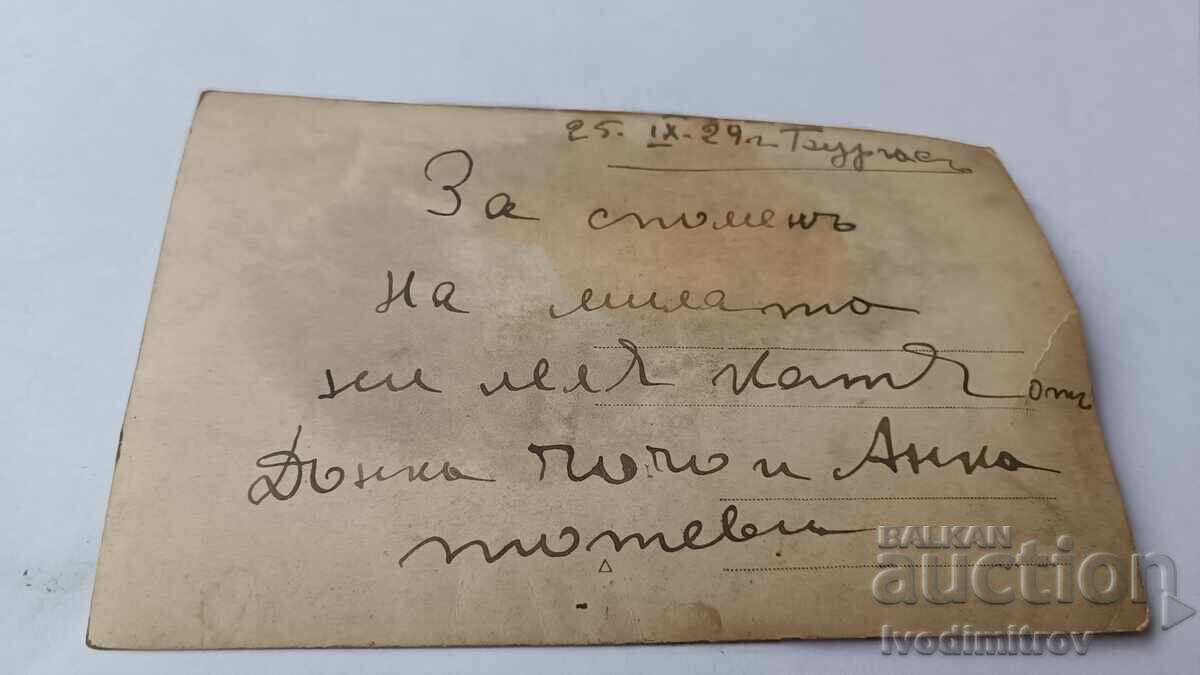 25. IX. 29 г. Бургасъ
За споменъ
на милата
ни леля Катя отъ
Донка Чочо и Анка
Тотеви
BALKAN
auction
Ivodimitrov